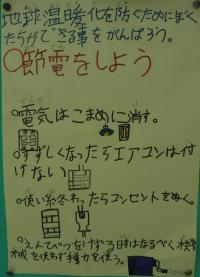 地球温暖化を防ぐためにぼく
たちができる事をがんばろう。
○節電をしよう
○電気はこまめに消す。
○すずしくなったらエアコンは付
けない
○使い終わったらコンセントをぬく。
○えんぴつをけずる日はなるべく
械を使わず種力を使う。